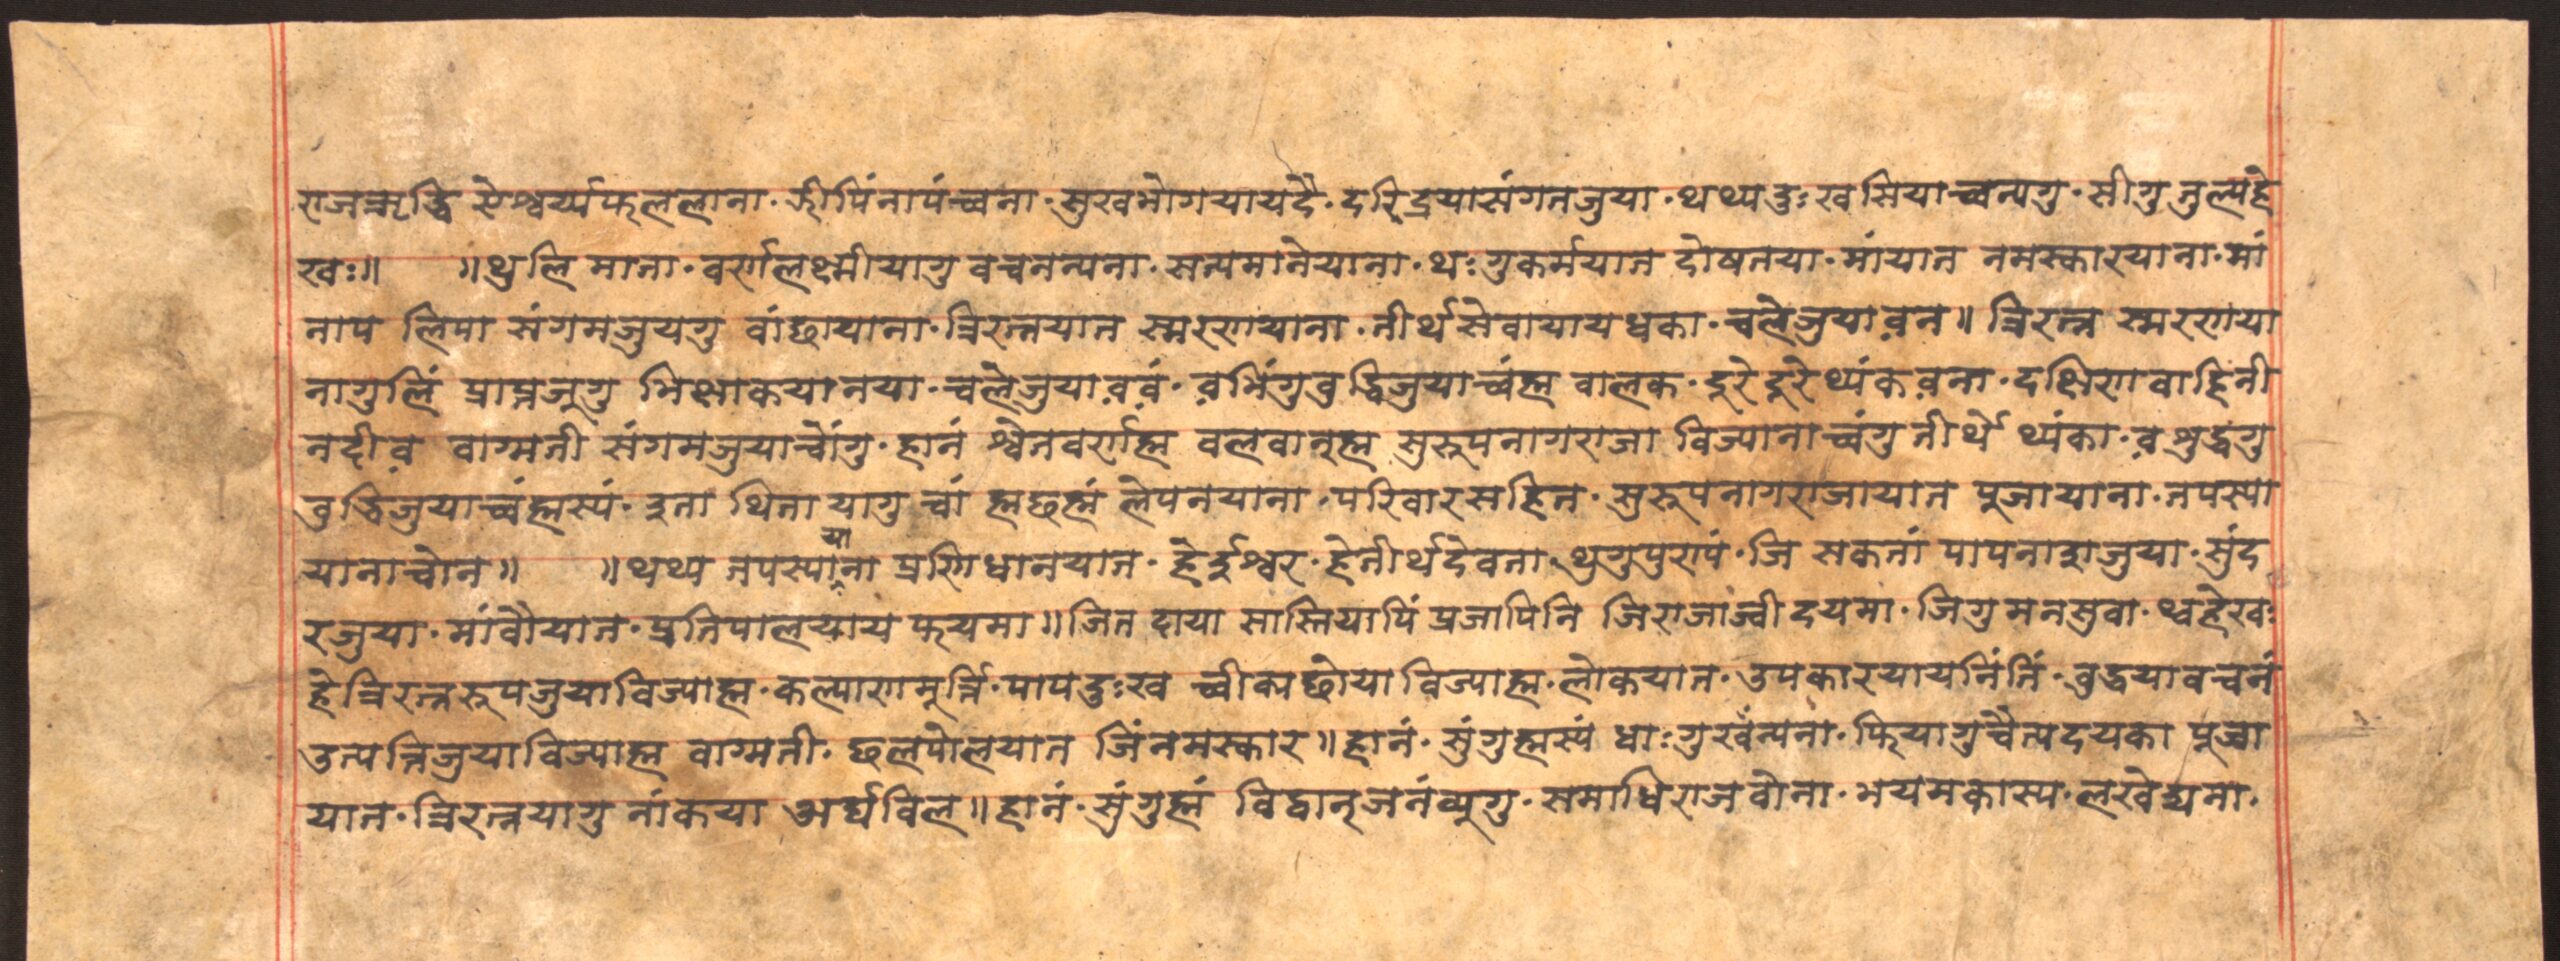 राजऋद्धि ऐश्वर्य्यफललाना · झीपिंनापंच्वना · सुखभोगयायदै · दरिद्रयासंगतजुया · थथ्यदुःखसियाच्वन्यगु · सीगुतुल्यहे
खः॥ ॥थुलि माता · वर्णलक्ष्मीयागु वचनन्यना · सत्यमानेयाना · थःगुकर्मयात दोषतया · मांयात नमस्कारयाना · मां
नाप लिपा संगमजुयगु वांछायाना · त्रिरत्नयात स्मरणयाना · तीर्थसेवायायधका · चलेजुयावन॥ त्रिरत्न स्मरणया
नागुलिं प्राप्तजूगु भिक्षाकयानया · चलेजुयावंवं · वभिंगुवुद्धिजुयाच्वंह्म वालक · दूरेदूरेथ्यंकवना · दक्षिणवाहिनी
नदीव वाग्मती संगमजुयाच्वोंगु · हानं श्वेतवर्णह्म वलवानह्म सुरूपनागराजा विज्यानाच्वंगु तीर्थे थ्यंका · वशुद्धगु
वुद्धिजुयाच्वंह्मस्यं · दुता थितायागु चां ह्मछह्मं लेपनयाना · परिवारसहित · सुरूपनागराजायात पूजायाना · तपस्या
यानाचोन॥ ॥थथ्य तपस्यायाना प्रणिधानयात · हेईश्वर · हेतीर्थदेवता थुगुपुण्यपं · जि सकतां पापनाशजुया · सुंद
रजुया · मांवौयात · प्रतिपालयाय फयमा॥जित दाया सास्तियापिं प्रजापिनि जिराजाज्वी दयमा · जिगु मनसुवा · थ्वहेखः
हेत्रिरत्नरूपजुयाविज्याह्म · कल्याणमूर्त्ति · पापदुःख च्वीकाछोयाविज्याह्म · लोकयात · उपकारयायनिंतिं · वुद्धयावचनं
उत्पत्तिजुयाविज्याह्म वाग्मती · छलपोलयात जिंनमस्कार॥ हानं · सुंगुह्मस्यं धाःगुखँन्यना · फियागुचैत्यदयका पूजा
यात · त्रिरत्नयागु नांकया अर्घविल॥ हानं · सुंगुह्मं विद्वान्जनंव्यूगु · समाधिराजवोना · भयमकास्य · लखेद्यना ·